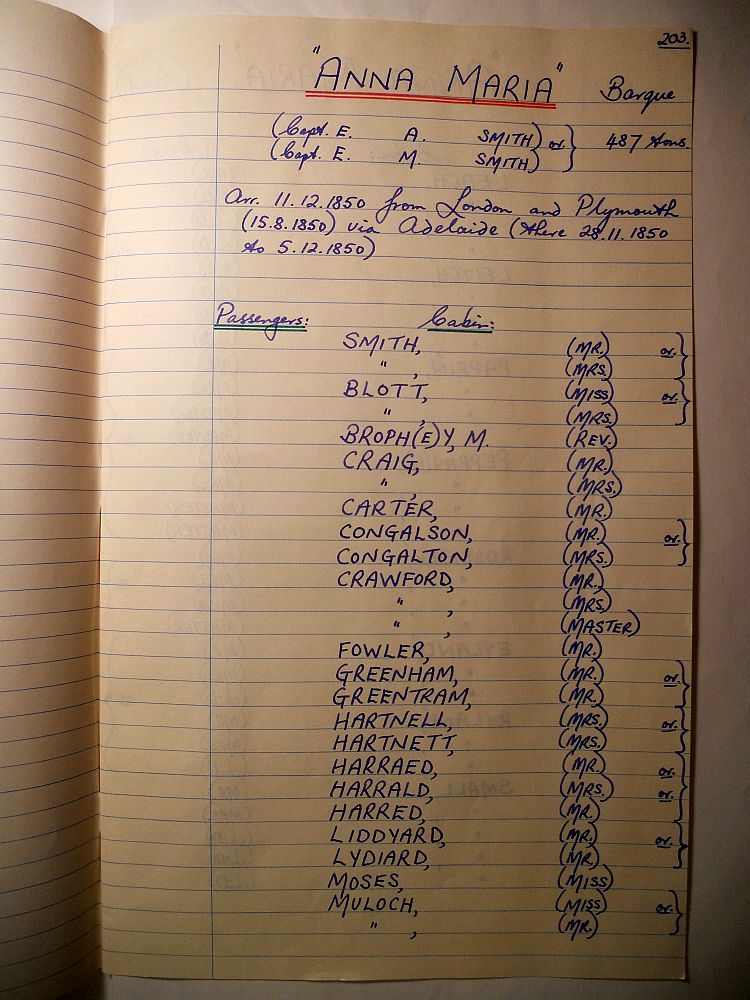 203.
"ANNA MARIA" Barque
(Capt. E. A. SMITH) or } 487 tons.
(Capt. E. M. SMITH)
Arr. 11.12.1850 from London and Plymouth
(15.8.1850) via Adelaide (there 28.11.1850
to 5.12.1850)
Passengers: Cabin:
SMITH, (MR.) or }
" , (MRS.)
BLOTT, (MISS) or }
" , (MRS.)
BROPH(E)Y, M. (REV.)
CRAIG, (MR.)
" , (MRS.)
CARTER, (MR.)
CONGALSON, (MR.) or }
CONGALTON, (MRS.)
CRAWFORD, (MR.)
" , (MRS.)
" , (MASTER)
FOWLER, (MR.)
GREENHAM, (MR.) or }
GREENTRAM, (MR.)
HARTNELL, (MRS.) or }
HARTNETT, (MRS.)
HARRAED, (MR.) or }
HARRALD, (MRS.) or
HARRED, (MR.)
LIDDYARD, (MR.) or }
LYDIARD, (MR.)
MOSES, (MISS)
MULOCH, (MISS) or }
" , (MR.)